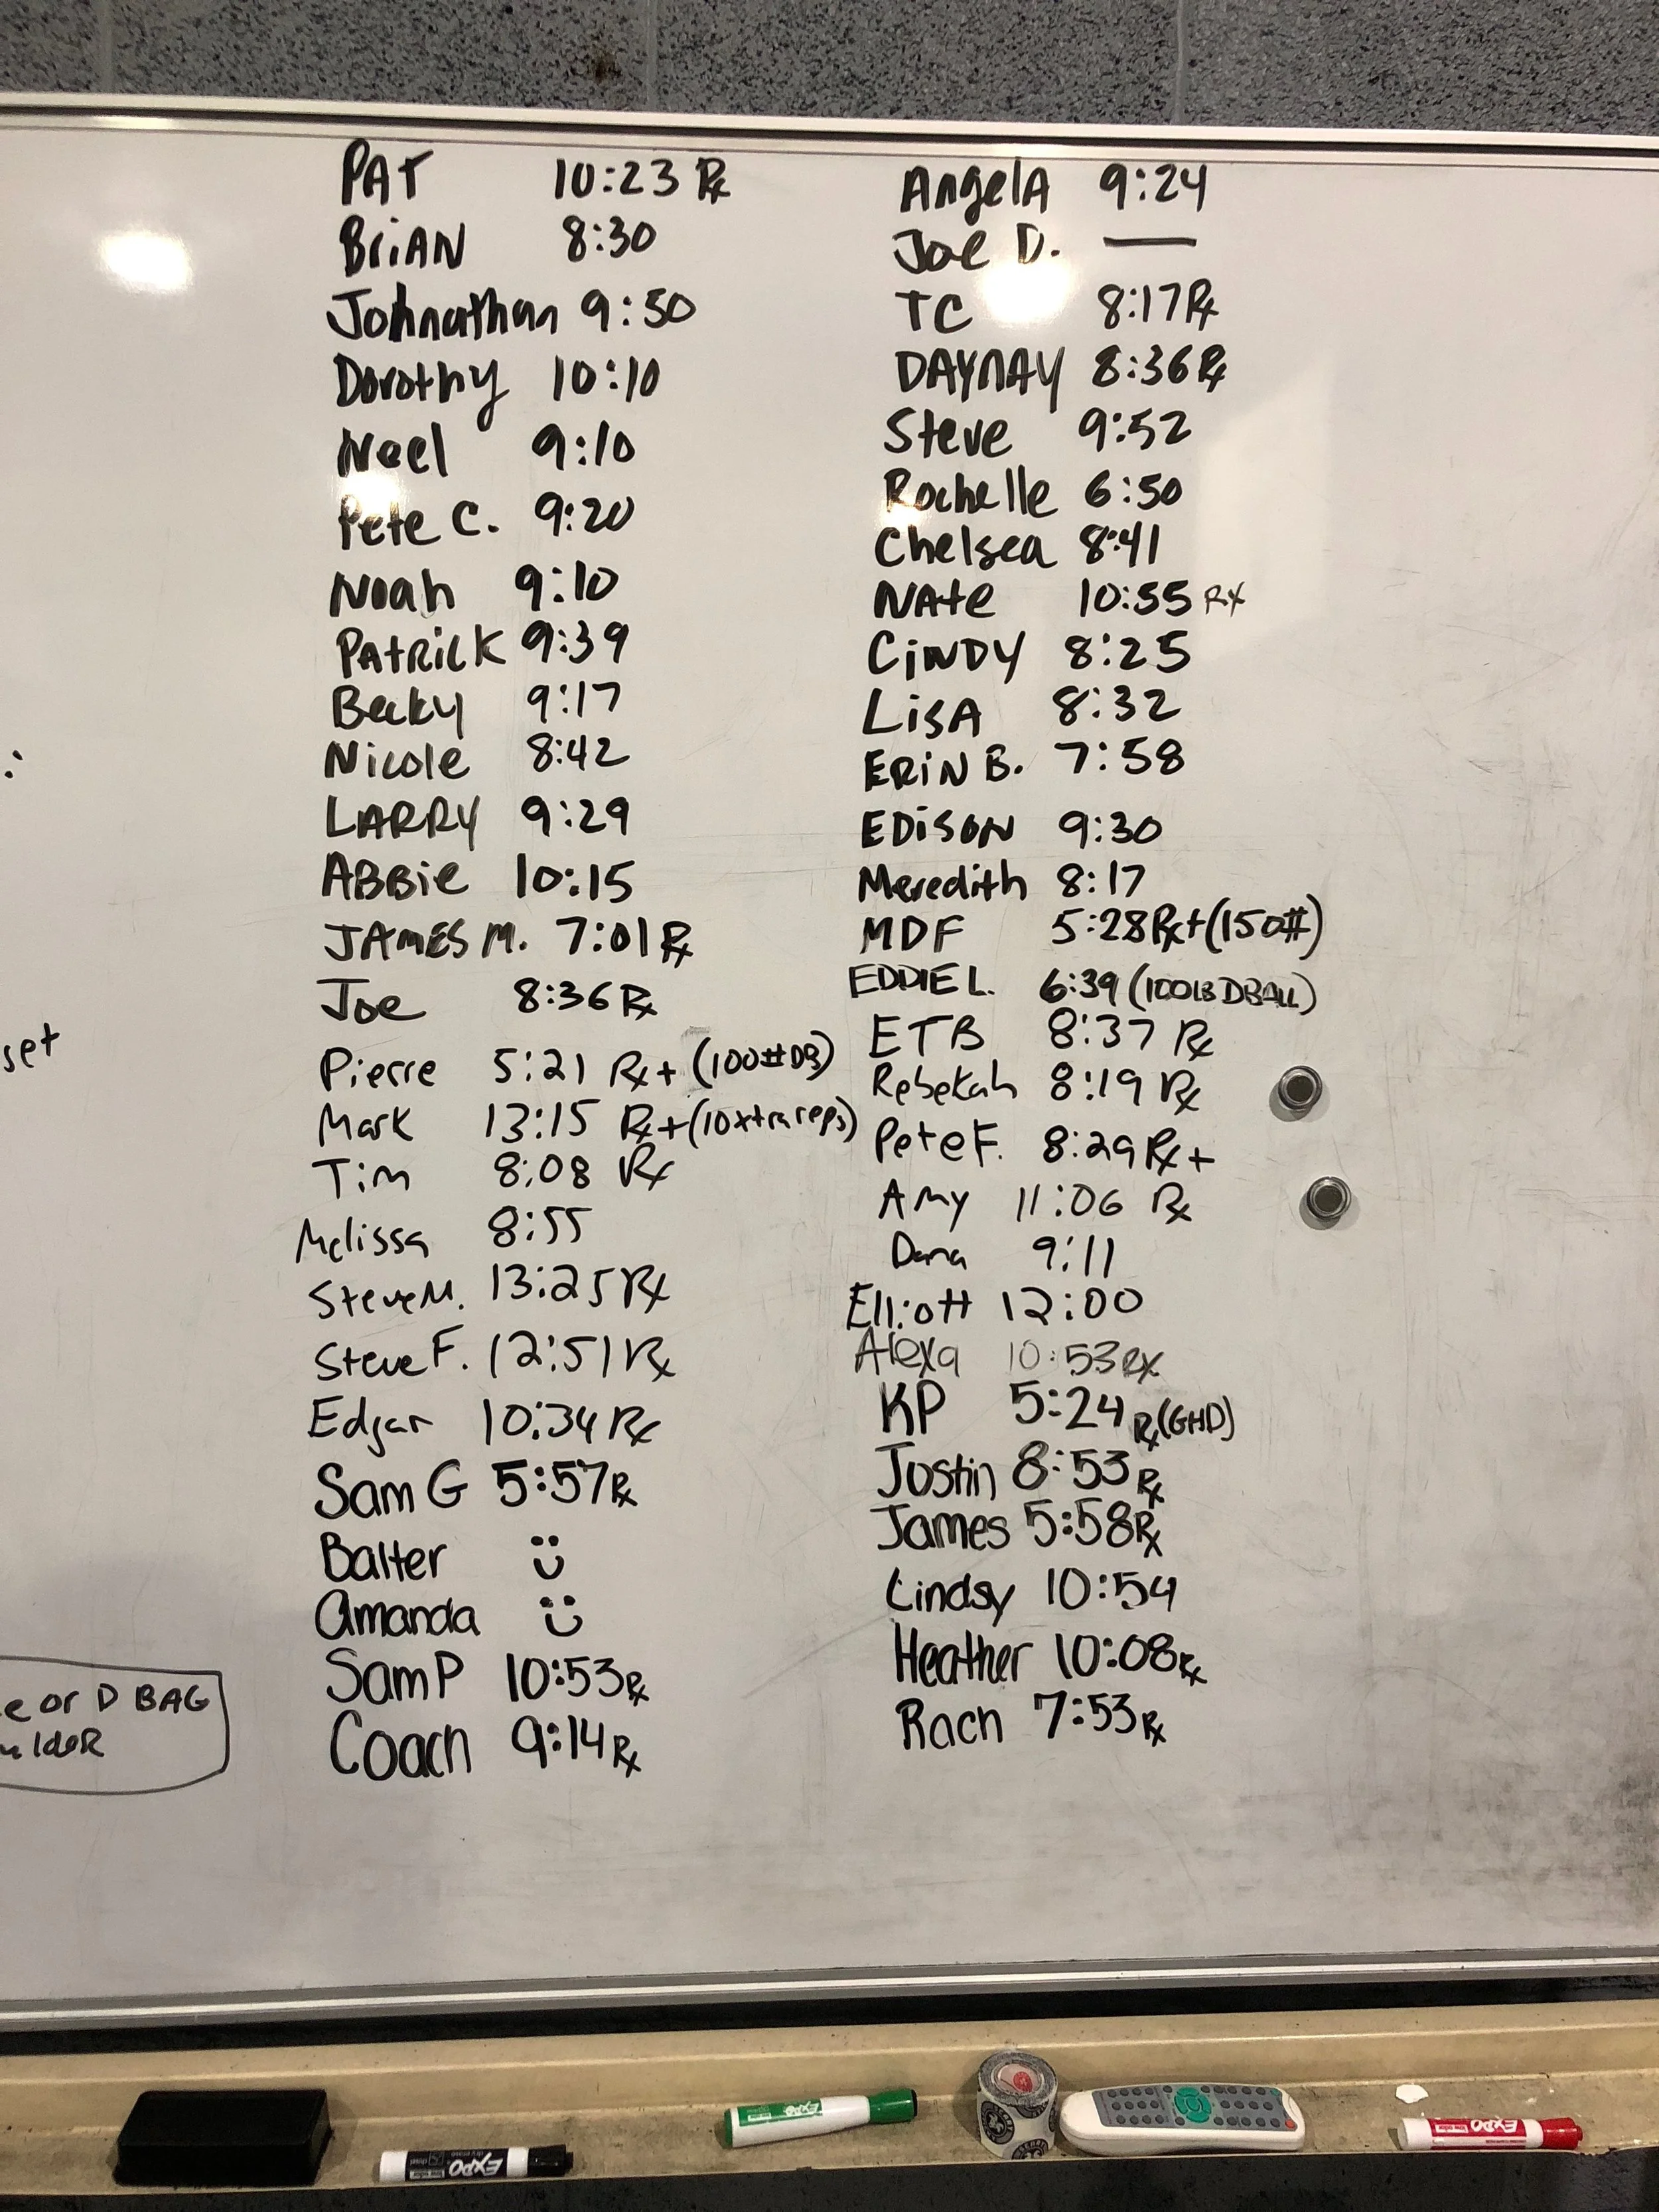 PAT 10:23 Rx
BRiAN 8:30
Johnathan 9:50
Dorothy 10:10
Noel 9:10
Pete C. 9:20
Noah 9:10
PATRICK 9:39
Becky 9:17
Nicole 8:42
LARRY 9:29
ABBie 10:15
JAMES M. 7:01 Rx
Joe 8:36 Rx
Pierre 5:21 Rx+ (100# DB)
Mark 13:15 Rx+ (10 xtra reps)
Tim 8:08 Rx
Melissa 8:55
Steve M. 13:25 Rx
Steve F. 12:51 Rx
Edgar 10:34 Rx
Sam G 5:57 Rx
Balter
Amanda
Sam P 10:53 Rx
Coach 9:14 Rx
AngelA 9:24
Joe D. —
TC 8:17 Rx
DAYNAY 8:36 Rx
Steve 9:52
Rochelle 6:50
Chelsea 8:41
NAte 10:55 RX
CiNDY 8:25
LisA 8:32
ERiN B. 7:58
EDiSON 9:30
Meredith 8:17
MDF 5:28 Rx+ (150#)
EDDIE L. 6:39 (100LB DBALL)
ETB 8:37 Rx
Rebekah 8:19 Rx
Pete F. 8:29 Rx+
Amy 11:06 Rx
Dana 9:11
Elliott 12:00
Alexa 10:53 RX
KP 5:24 Rx (GHD)
Justin 8:53 Rx
James 5:58 Rx
Lindsy 10:54
Heather 10:08 Rx
Rach 7:53 Rx
:
set
e or D BAG
ulder
EXPO
EXPO
EXPO